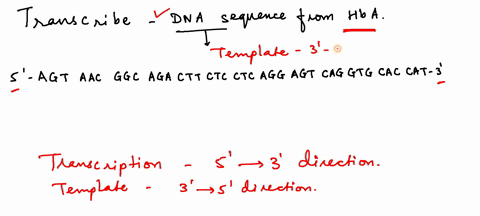 Transcribe - DNA sequence from HbA.
Template - 3'-
5'- AGT AAC GGC AGA CTT CTC CTC AGG AGT CAG GTG CAC CAT-3'
Transcription - 5' → 3' direction.
Template - 3' → 5' direction.